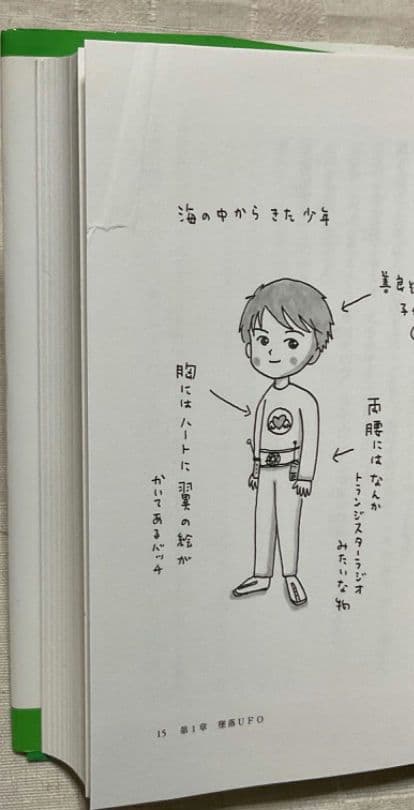 海の中からきた少年
善良
子
両腰にはなんか
トランジスターラジオ
みたいな物
胸にはハートに翼の絵が
かいてあるバッチ
15 第1章 墜落UFO